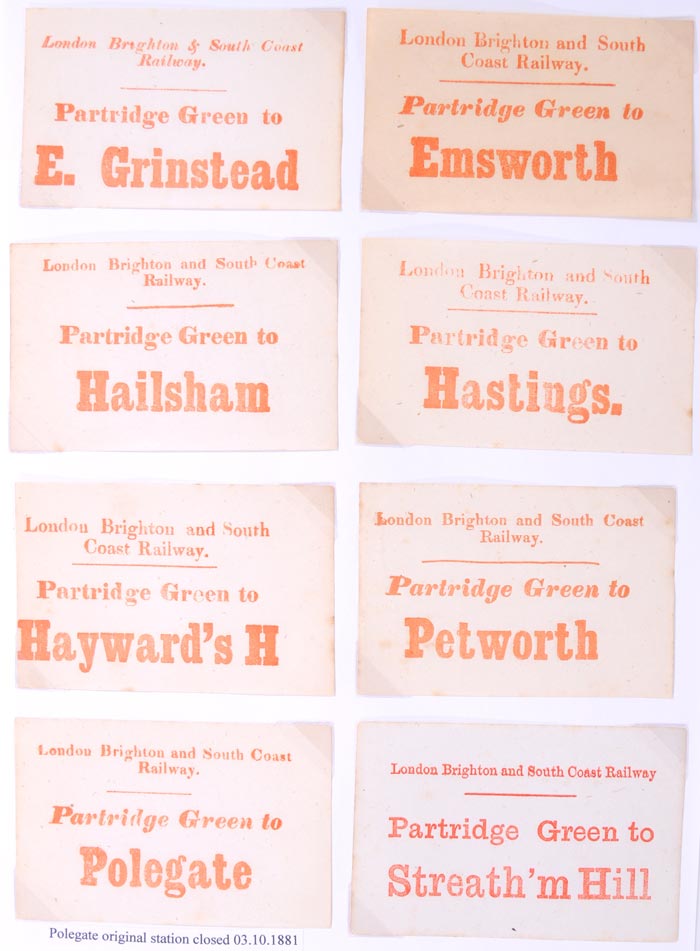 London Brighton & South Coast
Railway.
Partridge Green to
E. Grinstead
London Brighton and South
Coast Railway.
Partridge Green to
Emsworth
London Brighton and South Coast
Railway.
Partridge Green to
Hailsham
London Brighton and South
Coast Railway.
Partridge Green to
Hastings.
London Brighton and South
Coast Railway.
Partridge Green to
Hayward's H
London Brighton and South Coast
Railway.
Partridge Green to
Petworth
London Brighton and South Coast
Railway.
Partridge Green to
Polegate
London Brighton and South Coast Railway
Partridge Green to
Streath'm Hill
Polegate original station closed 03.10.1881